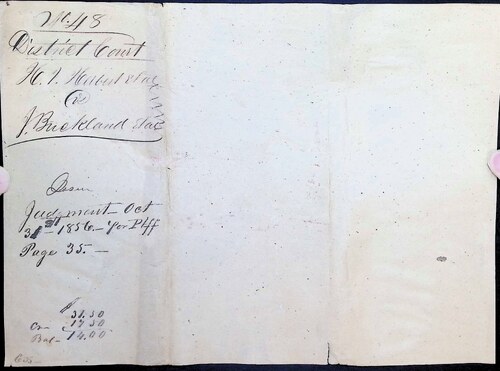 No. 48
District Court
H. I. Herbert & al
vs
J. Buckland & al
Judgment Oct
31st 1856 - for Plff
Page 35. -
$
31.50
Cr - 17.50
Bal - 14.00